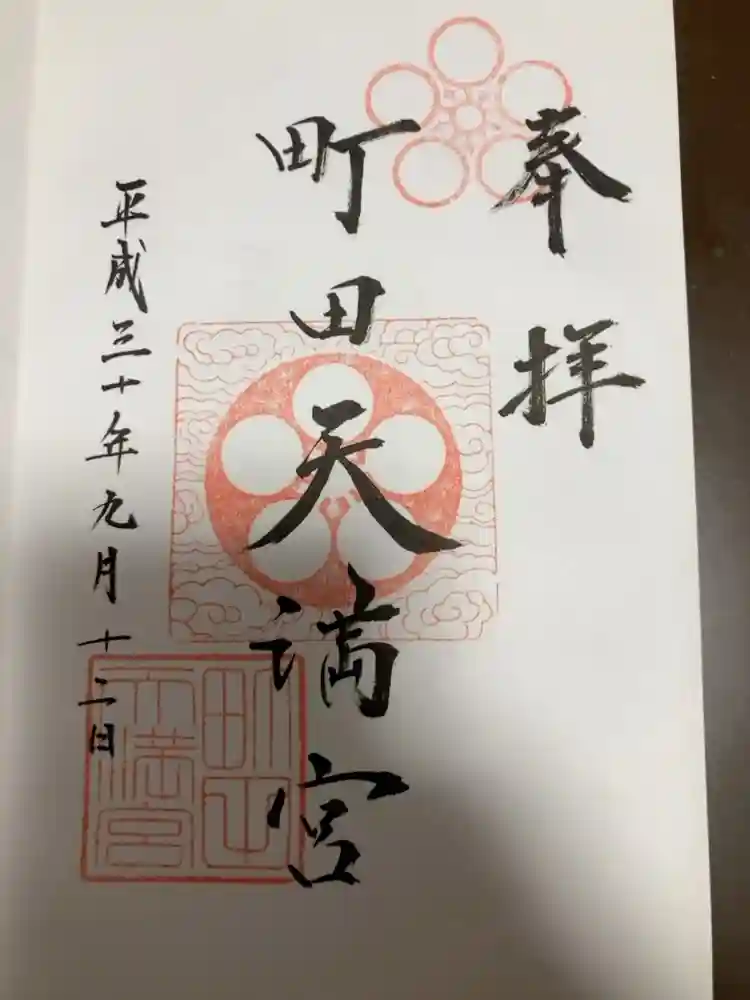 奉拝
町田天満宮
平成三十年九月十二日
町田天満宮